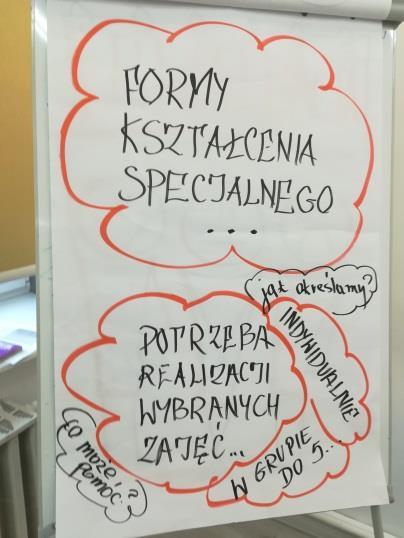 FORMY
KSZTAŁCENIA
SPECJALNEGO
...
jak określamy?
POTRZEBA
REALIZACJI
WYBRANYCH
ZAJĘĆ...
INDYWIDUALNIE
W GRUPIE
DO 5...
co może
pomóc?